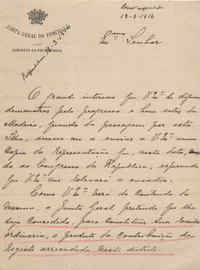 JUNTA GERAL DO FUNCHAL
GABINETE DA PRESIDENCIA
18-3-1916
Exmo Senhor
O grande interesse que V. Ex.ª
demonstrou pelo progresso e bem estar da
Madeira, quando da passagem por esta
Ilha, anima-me a enviar a V. Ex.ª uma
copia da Representação que, nesta data,
ao Congresso da Republica, esperando
que V. Ex.ª
Como V. Ex.ª
mesmo, a Junta Geral pretende que lhe
seja concedido, para constituir sua receita
ordinaria, o producto da contribuição de
registo arrecadada neste districto.